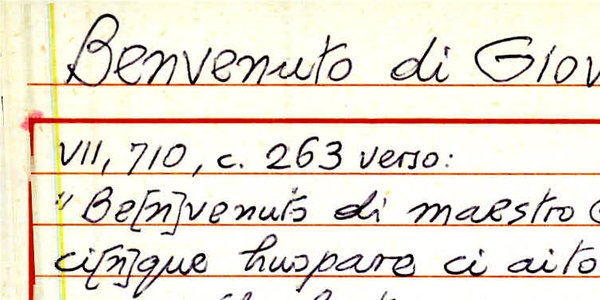 Benvenuto di Giov
VII, 710, c. 263 verso:
"Be[n]venuto di maestro G
ci[n]que huopare ci aito